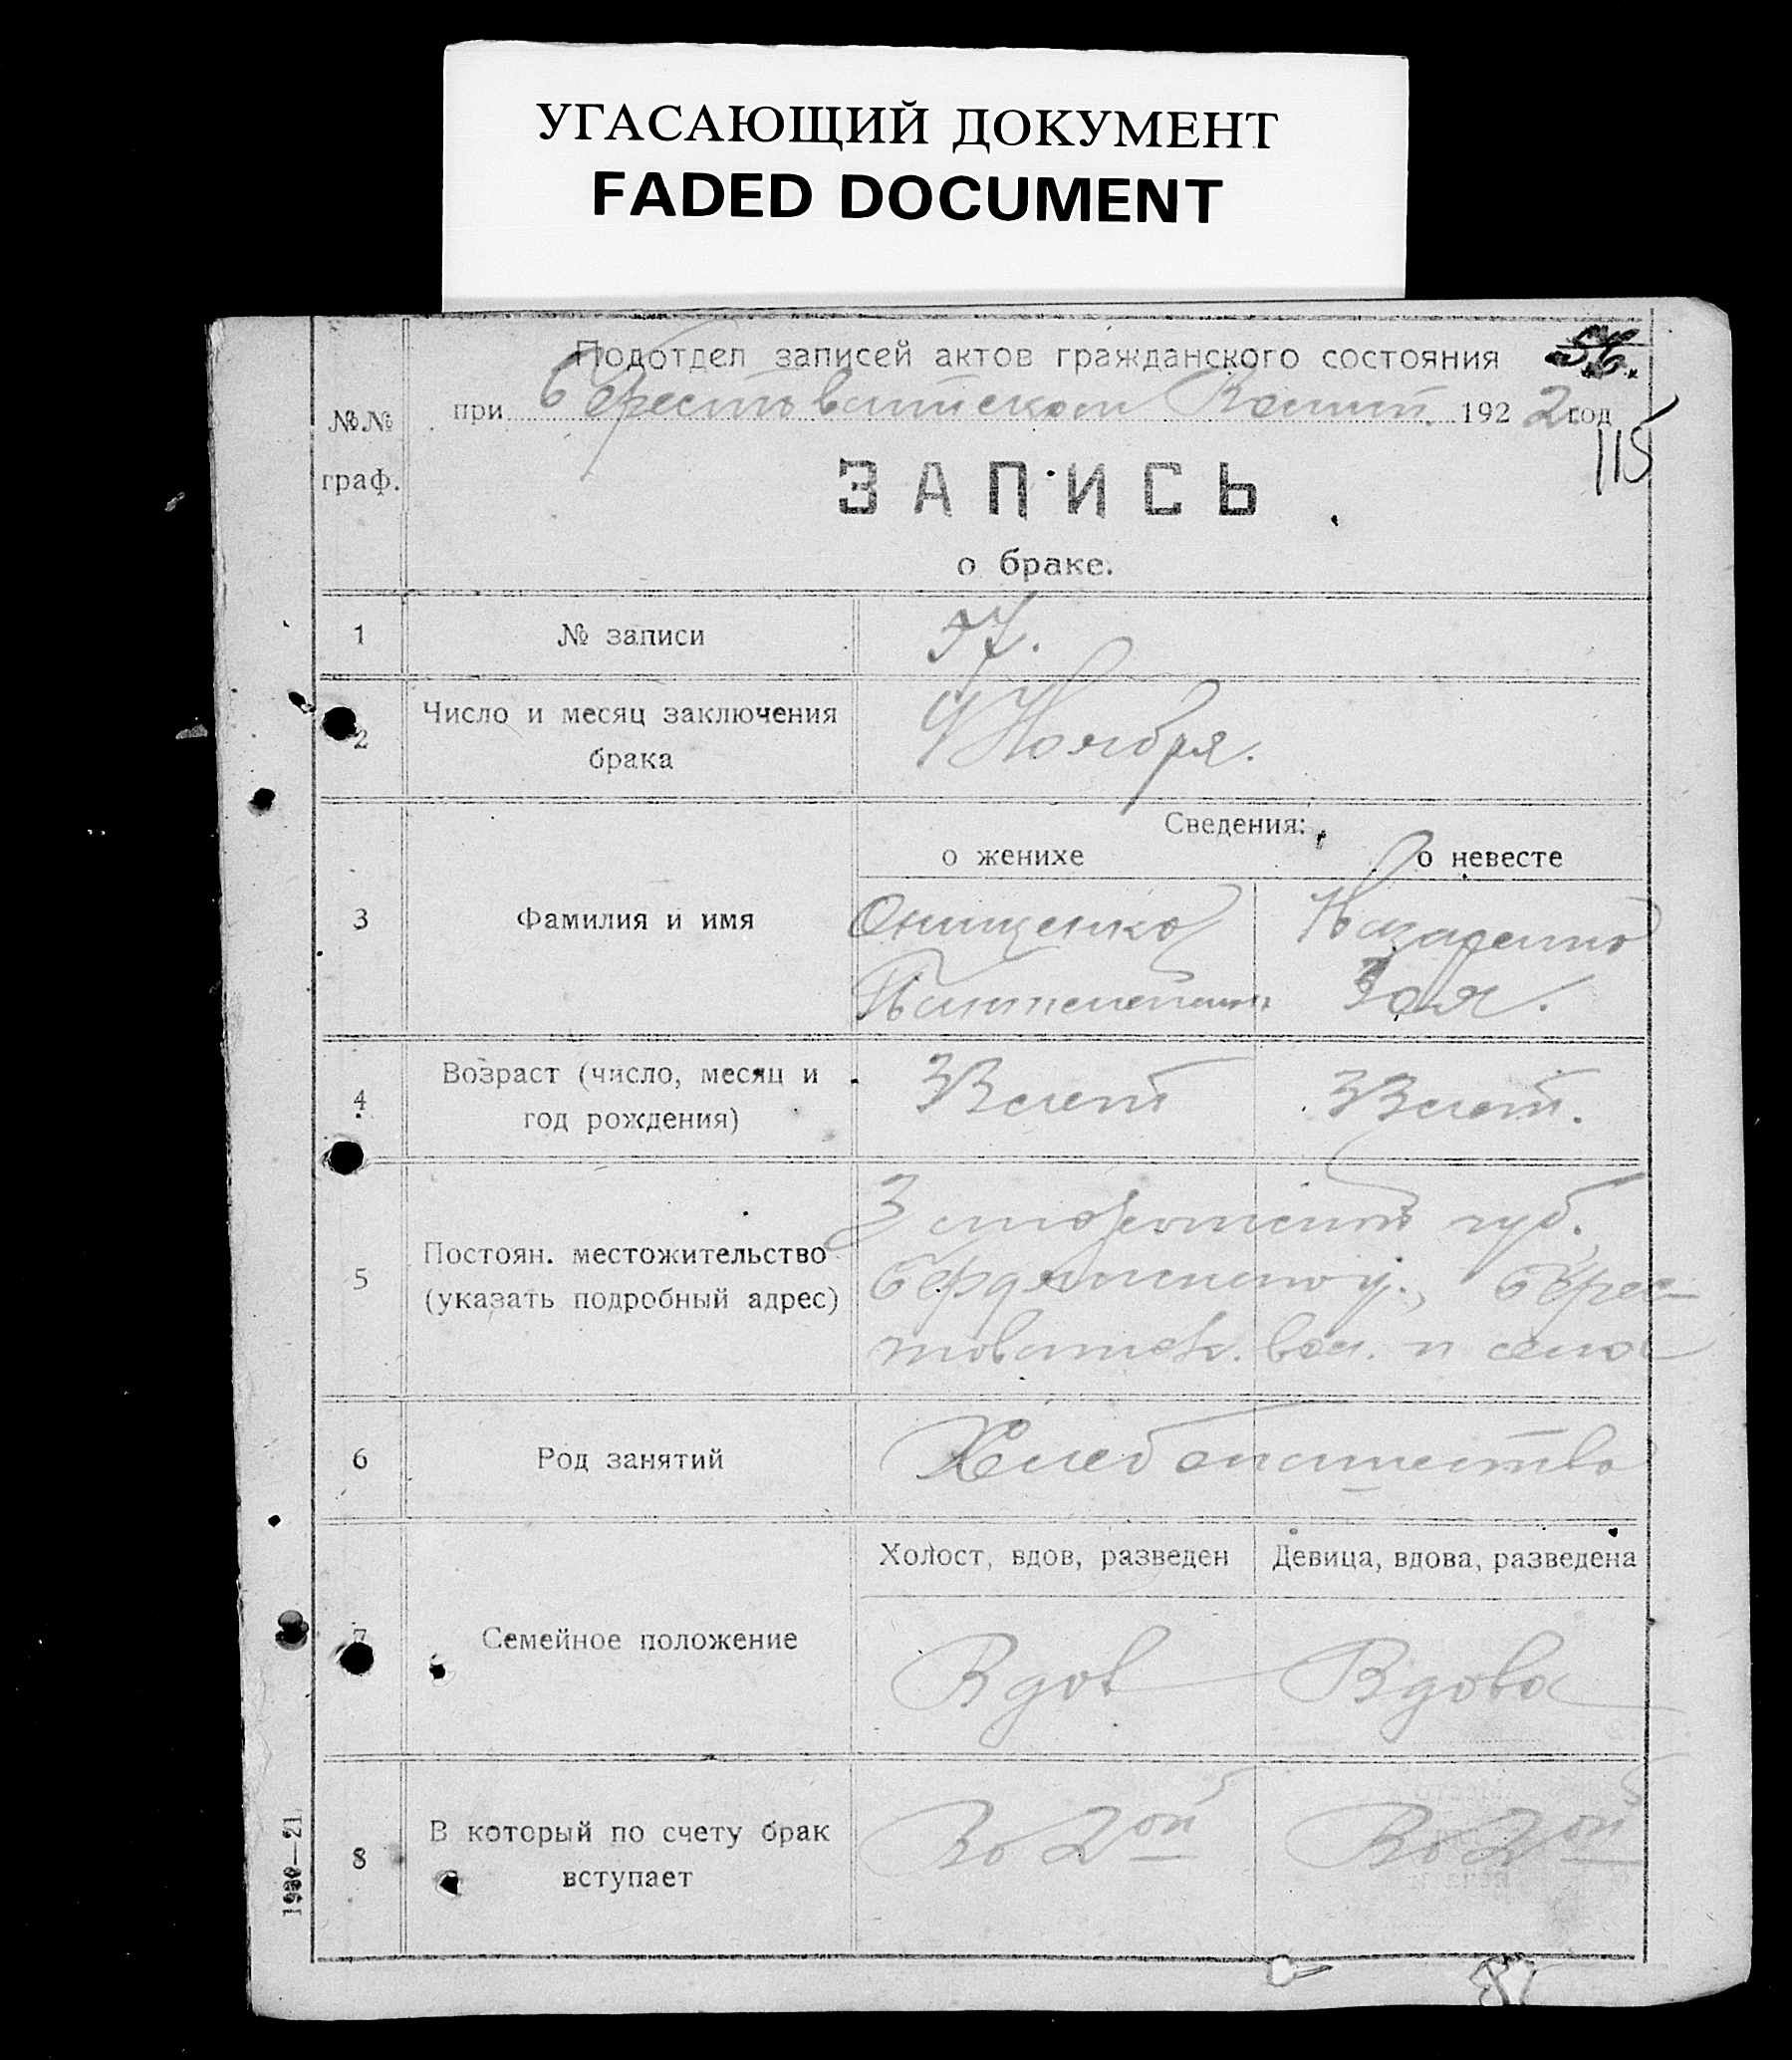 УГАСАЮЩИЙ ДОКУМЕНТ
FADED DOCUMENT
Подотдел записей актов гражданского состояния
при Берестоватском 192 2 год
115
№№
граф.
ЗАПИСЬ
о браке.
1 № записи 57.
2 Число и месяц заключения
брака
9 Ноября.
Сведения:
о женихе о невесте
3 Фамилия и имя
Онищенко
Зоя.
4 Возраст (число, месяц и
год рождения)
лет лет.
5 Постоян. местожительство
(указать подробный адрес)
губ.
Бердянского у., Берес-
товатск. вол. и села
6 Род занятий Хлебопашество
Холост, вдов, разведен Девица, вдова, разведена
7 Семейное положение
Вдов Вдова
8 В который по счету брак
вступает
Во 2ой Во 2ой